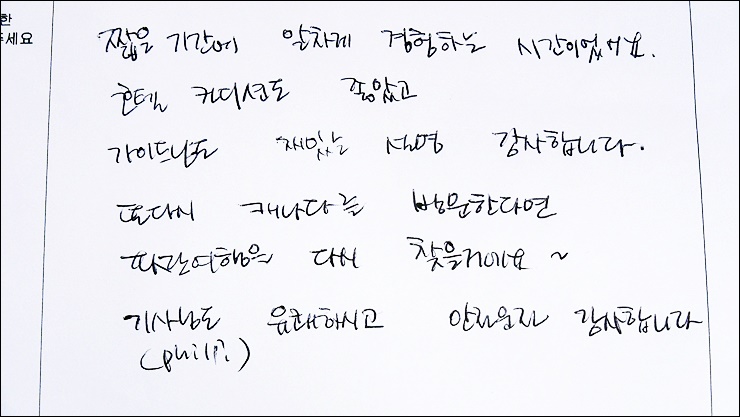 한
주세요
짧은 기간에 알차게 경험하는 시간이었어요.
호텔 컨디션도 좋았고
가이드님도 재밌는 설명 감사합니다.
또다시 캐나다를 방문한다면
파란여행을 다시 찾을거에요~
기사님도 유쾌하시고 안전운전 감사합니다
(philip)